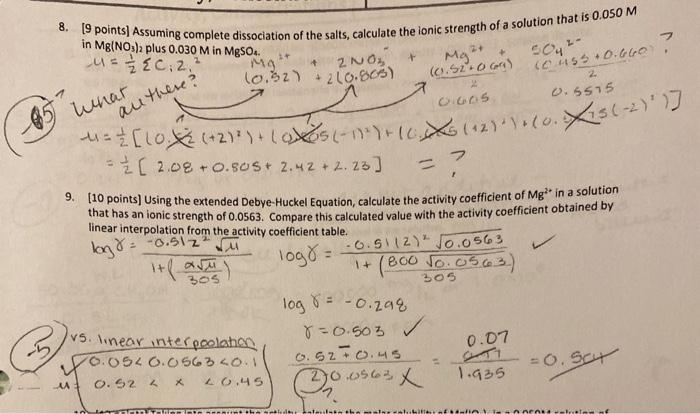 8. [9 points] Assuming complete dissociation of the salts, calculate the ionic strength of a solution that is 0.050 M
in Mg(NO₃)₂ plus 0.030 M in MgSO₄.
μ = ½ Σ Cᵢ Zᵢ² Mg²⁺ + 2NO₃ + Mg²⁺ + SO₄²⁻ ?
(0.52) + 2(0.805) (0.52+0.69)/2 (0.455+0.660)/2
0.605 0.5575
What are these?
μ = ½ [(0.52(+2)²) + (0.805(-1)²) + (0.605(+2)²) + (0.5575(-2)²)]
= ½ [2.08 + 0.805 + 2.42 + 2.23] = ?
9. [10 points] Using the extended Debye-Huckel Equation, calculate the activity coefficient of Mg²⁺ in a solution
that has an ionic strength of 0.0563. Compare this calculated value with the activity coefficient obtained by
linear interpolation from the activity coefficient table.
log γ = -0.51z²√μ / 1+(α√μ/305) log γ = -0.51(2)²√0.0563 / 1+(800√0.0563/305) ✓
log γ = -0.298
γ = 0.503 ✓
-5
vs. linear interpoolation
0.05 < 0.0563 < 0.1
μ 0.52 < x < 0.45
0.52 + 0.45 / 2√0.0563 = 0.07 / 1.935 =
?